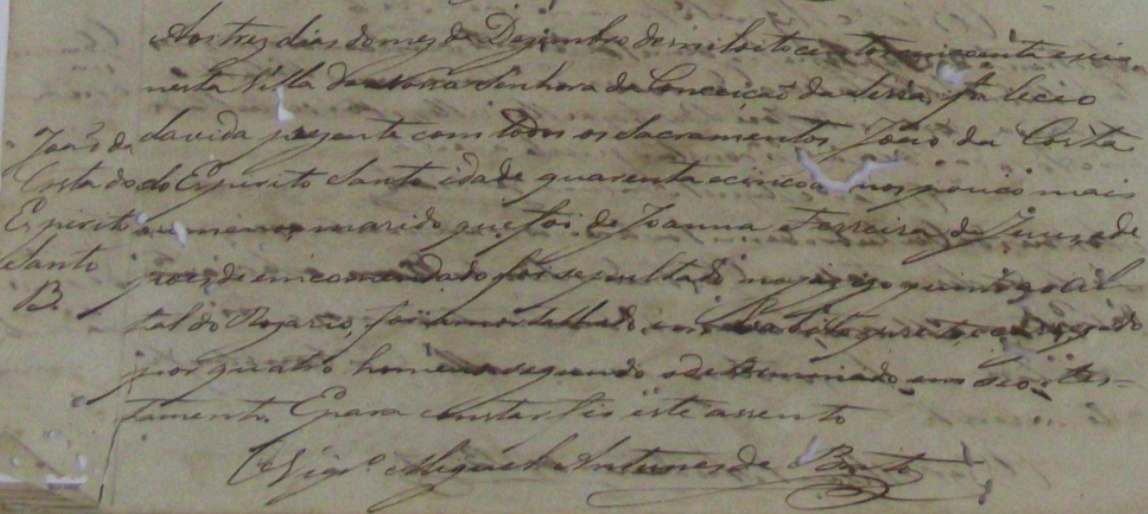 Aos tres dias do mes de Dezembro de mil oito centos e cincoenta e cin
nesta Villa de Nossa Senhora da Conceição da Serra, faleceo
da vida prezente com todos os Sacramentos João da Costa
do Espirito Santo idade quarenta e cinco annos pouco mais
ou menos, marido que foi de Joanna Ferreira de Jesus, e de
pois de emcomendado foi sepultado no jazigo junto ao Al
tal do Rozario, foi amortalhado em habito preto, e carregado
por quatro homens segundo o determinado em seo tes=
tamento. E para constar fis este assento
O Vigr.º Miguel Antunes de Brito
João da
Costa do
Espirito
Santo
B.